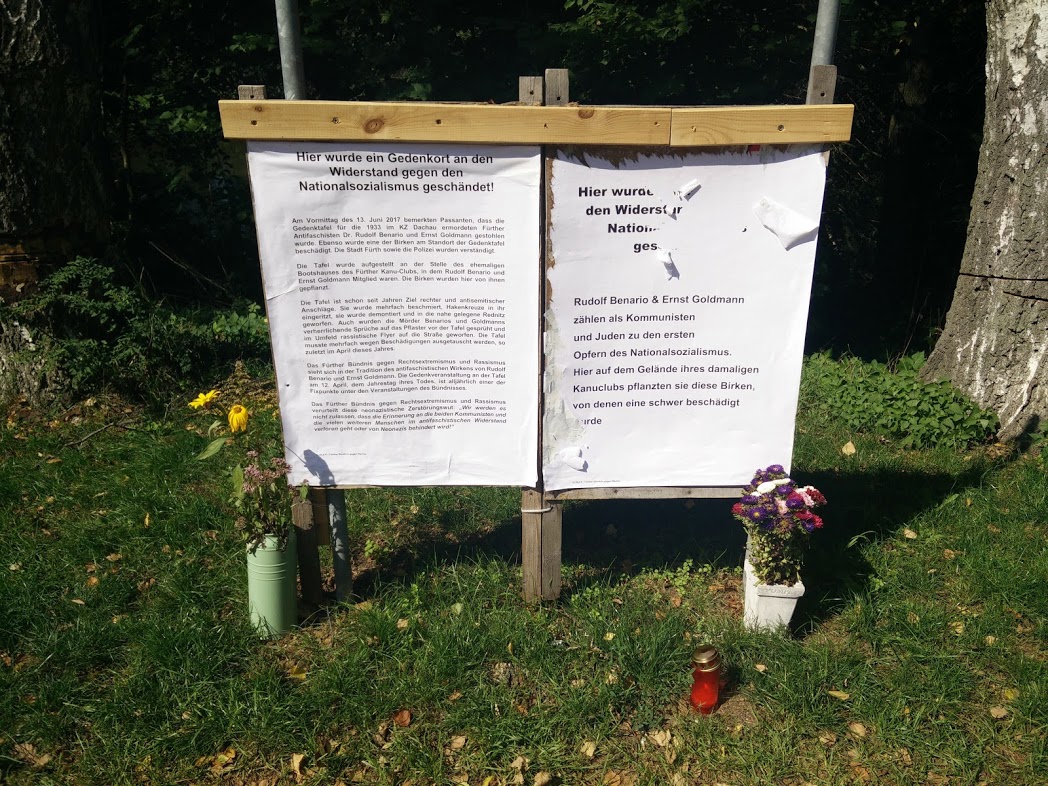 Hier wurde ein Gedenkort an den
Widerstand gegen den
Nationalsozialismus geschändet!
Am Vormittag des 13. Juni 2017 bemerkten Passanten, dass die
Gedenktafel für die 1933 im KZ Dachau ermordeten Fürther
Antifaschisten Dr. Rudolf Benario und Ernst Goldmann gestohlen
wurde. Ebenso wurde eine der Birken am Standort der Gedenktafel
beschädigt. Die Stadt Fürth sowie die Polizei wurden verständigt.
Die Tafel wurde aufgestellt an der Stelle des ehemaligen
Bootshauses des Fürther Kanu-Clubs, in dem Rudolf Benario und
Ernst Goldmann Mitglied waren. Die Birken wurden hier von ihnen
gepflanzt.
Die Tafel ist schon seit Jahren Ziel rechter und antisemitischer
Anschläge. Sie wurde mehrfach beschmiert, Hakenkreuze in ihr
eingeritzt, sie wurde demontiert und in die nahe gelegene Rednitz
geworfen. Auch wurden die Mörder Benarios und Goldmanns
verherrlichende Sprüche auf das Pflaster vor der Tafel gesprüht und
im Umfeld rassistische Flyer auf die Straße geworfen. Die Tafel
musste mehrfach wegen Beschädigungen ausgetauscht werden, so
zuletzt im April dieses Jahres.
Das Fürther Bündnis gegen Rechtsextremismus und Rassismus
sieht sich in der Tradition des antifaschistischen Wirkens von Rudolf
Benario und Ernst Goldmann. Die Gedenkveranstaltung an der Tafel
am 12. April, dem Jahrestag ihres Todes, ist alljährlich einer der
Fixpunkte unter den Veranstaltungen des Bündnisses.
Das Fürther Bündnis gegen Rechtsextremismus und Rassismus
verurteilt diese neonazistische Zerstörungswut: „Wir werden es
nicht zulassen, dass die Erinnerung an die beiden Kommunisten und
die vielen weiteren Menschen im antifaschistischen Widerstand
verloren geht oder von Neonazis behindert wird!"
Hier wurde
den Widerstan
Nation
ges
Rudolf Benario & Ernst Goldmann
zählen als Kommunisten
und Juden zu den ersten
Opfern des Nationalsozialismus.
Hier auf dem Gelände ihres damaligen
Kanuclubs pflanzten sie diese Birken,
von denen eine schwer beschädigt
wurde